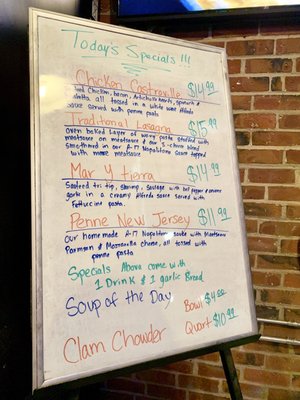 Today's Specials !!!
Chicken Castroville $14.99
Chicken, bacon, Artichoke hearts, spinach &
all tossed in a white wine Alfredo
sauce served with penne pasta
Traditional Lasagna $15.99
oven baked layer of wavy pasta stuffed with
meatsauce on meatsauce & our 3-cheese blend
smothered in our A-17 Napolitana sauce topped
with more meatsauce
Mar y tierra $14.99
Sauteed tri tip, shrimp, sausage with bell pepper & onions
in a creamy Alfredo sauce served with
Fettuccine pasta.
Penne New Jersey $11.99
our homemade A-17 Napolitan sauce with Meatsauce
Parmesan & Mozzarella cheese, all tossed with
penne pasta
Specials Above come with
1 Drink & 1 garlic Bread
Soup of the Day
Bowl $4.99
Clam Chowder
Quart $10.99